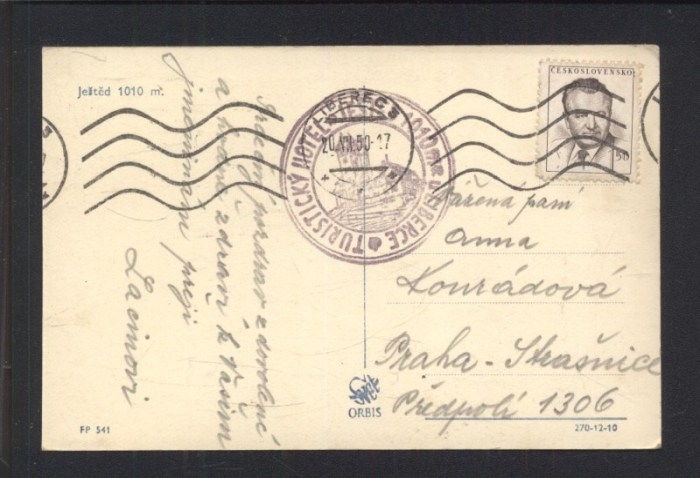 Ještěd 1010 m.
Srdečný pozdrav z dovolené
a hodně zdraví k Vašim
jmeninám přejí
Lacinovi
LIBEREC 3
20.VII.50-17
TURISTICKÝ HOTEL
LIBERCE
ČESKOSLOVENSKO
50
Vážená paní
Anna
Konrádová
Praha - Strašnice
Předpolí 1306
Svět
ORBIS
FP 541
270-12-10